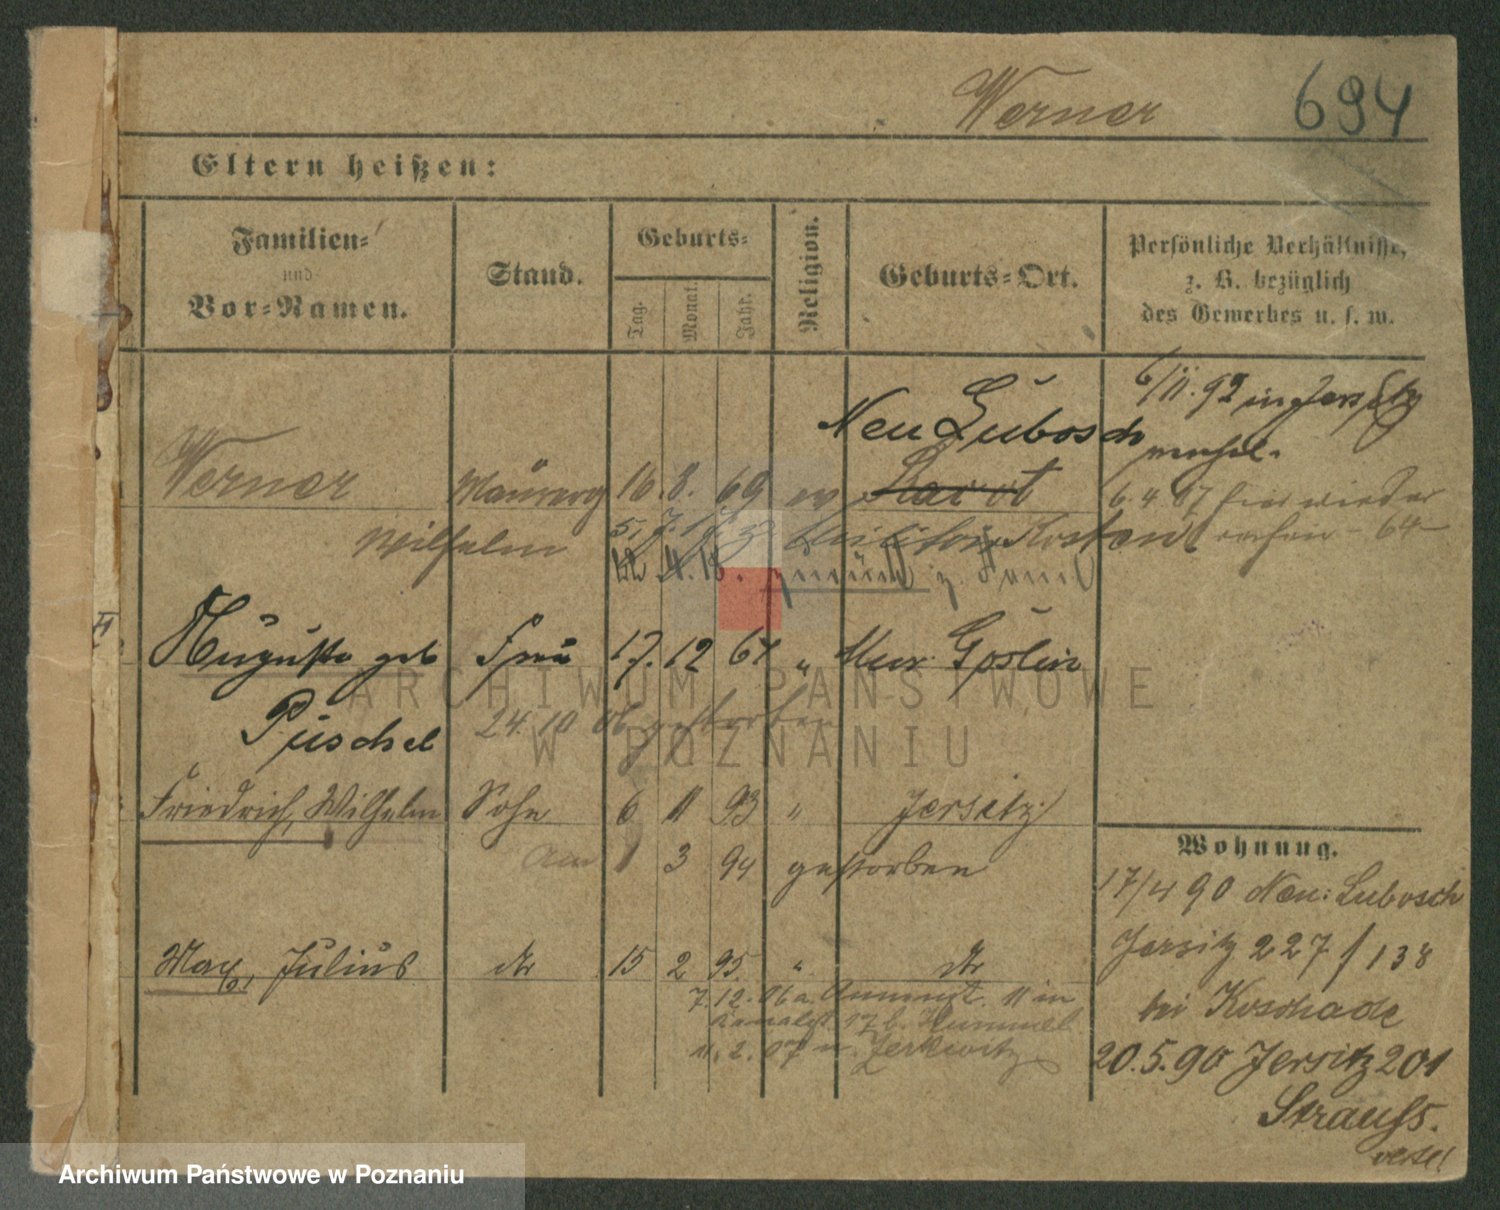 Werner 694
Eltern heißen:
Familien=
und
Vor=Namen.
Stand.
Geburts=
Tag.
Monat.
Jahr.
Religion.
Geburts=Ort.
Persönliche Verhältnisse,
z. B. bezüglich
des Gewerbes u. s. w.
6/11. 92 in Jersitz
Neu Lubosch
Werner 16. 8. 69 ev
6. 4. 07
Wilhelm Kosten 64
Auguste geb Frau 17. 12 67 " Mur: Goslin
Püschel 24. 10 06 gestorben
Friedrich, Wilhelm Sohn 6 11 93 " Jersitz
am 1 3 94 gestorben
Max, Julius dto 15 2 95 " dto
7. 12. 06 a. 11 in
Kanalst. 17 b. Hummel
11. 2. 07 n. Zerkwitz
Wohnung.
17/4 90 Neu: Lubosch
Jersitz 227/138
bei Koschade
20. 5. 90 Jersitz 201
Strauss.
ARCHIWUM PAŃSTWOWE
W POZNANIU
Archiwum Państwowe w Poznaniu